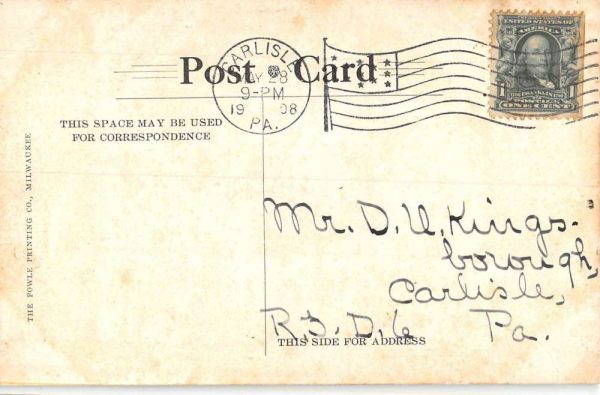 Post Card
CARLISLE
MAY 28
9-PM
1908
PA.
UNITED STATES OF
AMERICA
1
POSTAGE
ONE CENT
THIS SPACE MAY BE USED
FOR CORRESPONDENCE
THE FOWLE PRINTING CO., MILWAUKEE
Mr. D. U. Kings-
borough,
Carlisle,
R. F. D. 6 Pa.
THIS SIDE FOR ADDRESS